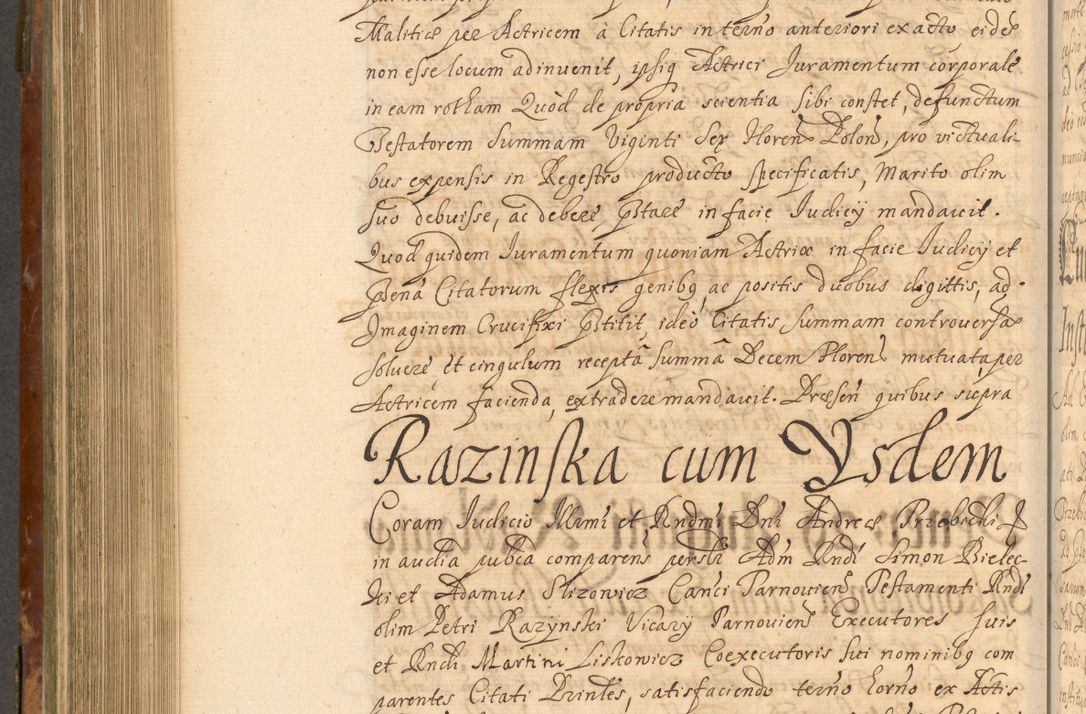 Malitiæ per Actricem à Citatis in termo anteriori exacto eidē
non esse locum adinuenit, ipsiq Actrici Juramentum corporale
in eam rotham Quòd de propria scientia sibi constet, defunctum
Testatorem Summam Viginti Sex Floren Polon, pro victuali
bus expensis in Regestro producto specificatis, Marito olim
suo debuisse, ac debere, pstare in facie Judicij mandauit.
Quod quidem Juramentum quoniam Actrix in facie Judicij et
pñena Citatorum flexis genibq ac positis duobus digittis, ad
Imaginem Crucifixi pstitit, ideò Citatis Summam controuersa
soluere et cingulum receptâ Summâ Decem Floren mutuata per
Actricem facienda, extradere mandauit. Præsen quibus supra
Razinska cum Ysdem
Coram Judicio Illmi et Rndmi Dni Andreæ Trzebicki
in audia pubca comparens perstr Adm Rndi Simon Bielec
ki et Adamus Slizowicz Canci Tarnouien Testamenti Rndi
olim Petri Razynski Vicarij Tarnouien Executores suis
et Rndi Martini Liskowicz Coexecutoris sui nominibq com
parentes Citati Drintes, satisfaciendo termo horno ex Actis